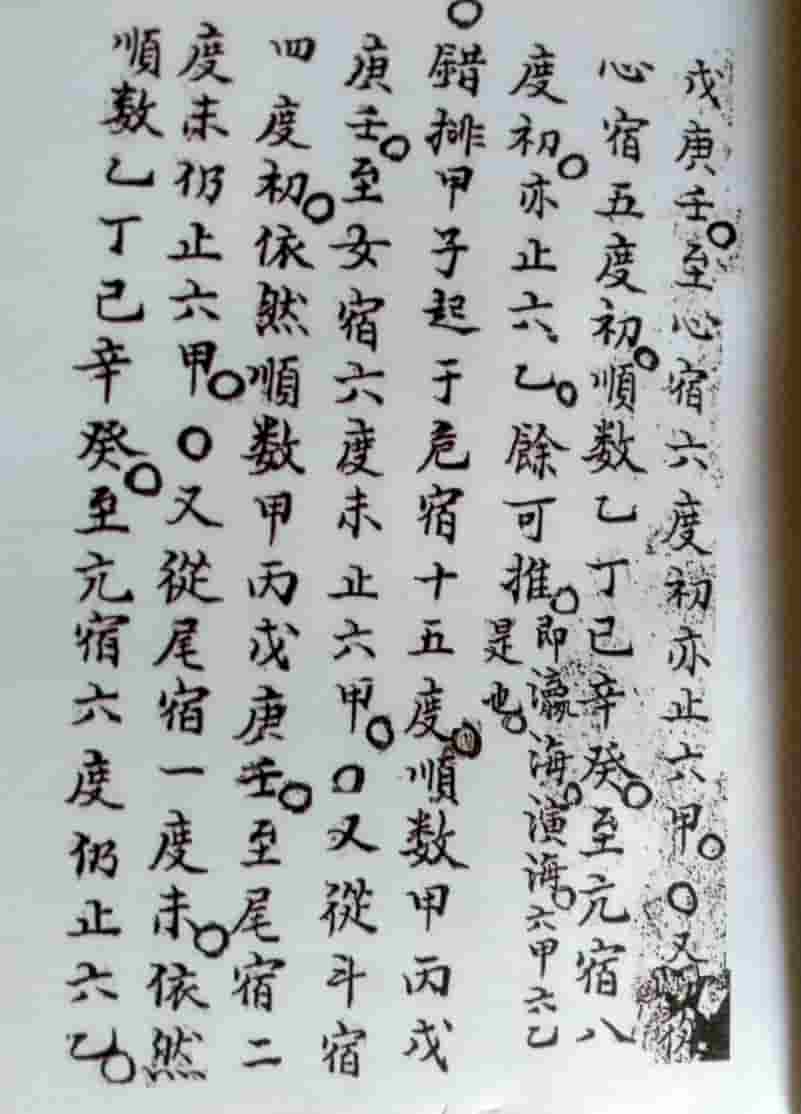 戊庚壬。至心宿六度初亦止六甲。○又
心宿五度初。順数乙丁己辛癸。至亢宿八
度初。亦止六乙。餘可推。即瀛海。演海。六甲六乙是也。
○錯排甲子起于危宿十五度。順数甲丙戊
庚壬。至女宿六度未止六甲。○又從斗宿
四度初。依然順数甲丙戊庚壬。至尾宿二
度未仍止六甲。○又從尾宿一度未。依然
順数乙丁己辛癸。至亢宿六度仍止六乙。